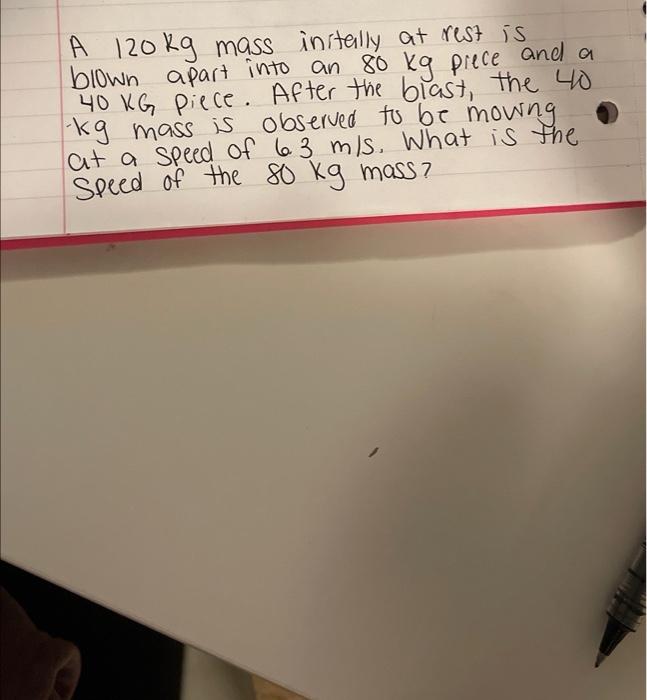 A 120 kg mass initally at rest is
blown apart into an 80 kg piece and a
40 KG piece. After the blast, the 40
-kg mass is observed to be moving
at a speed of 63 m/s. What is the
speed of the 80 kg mass?